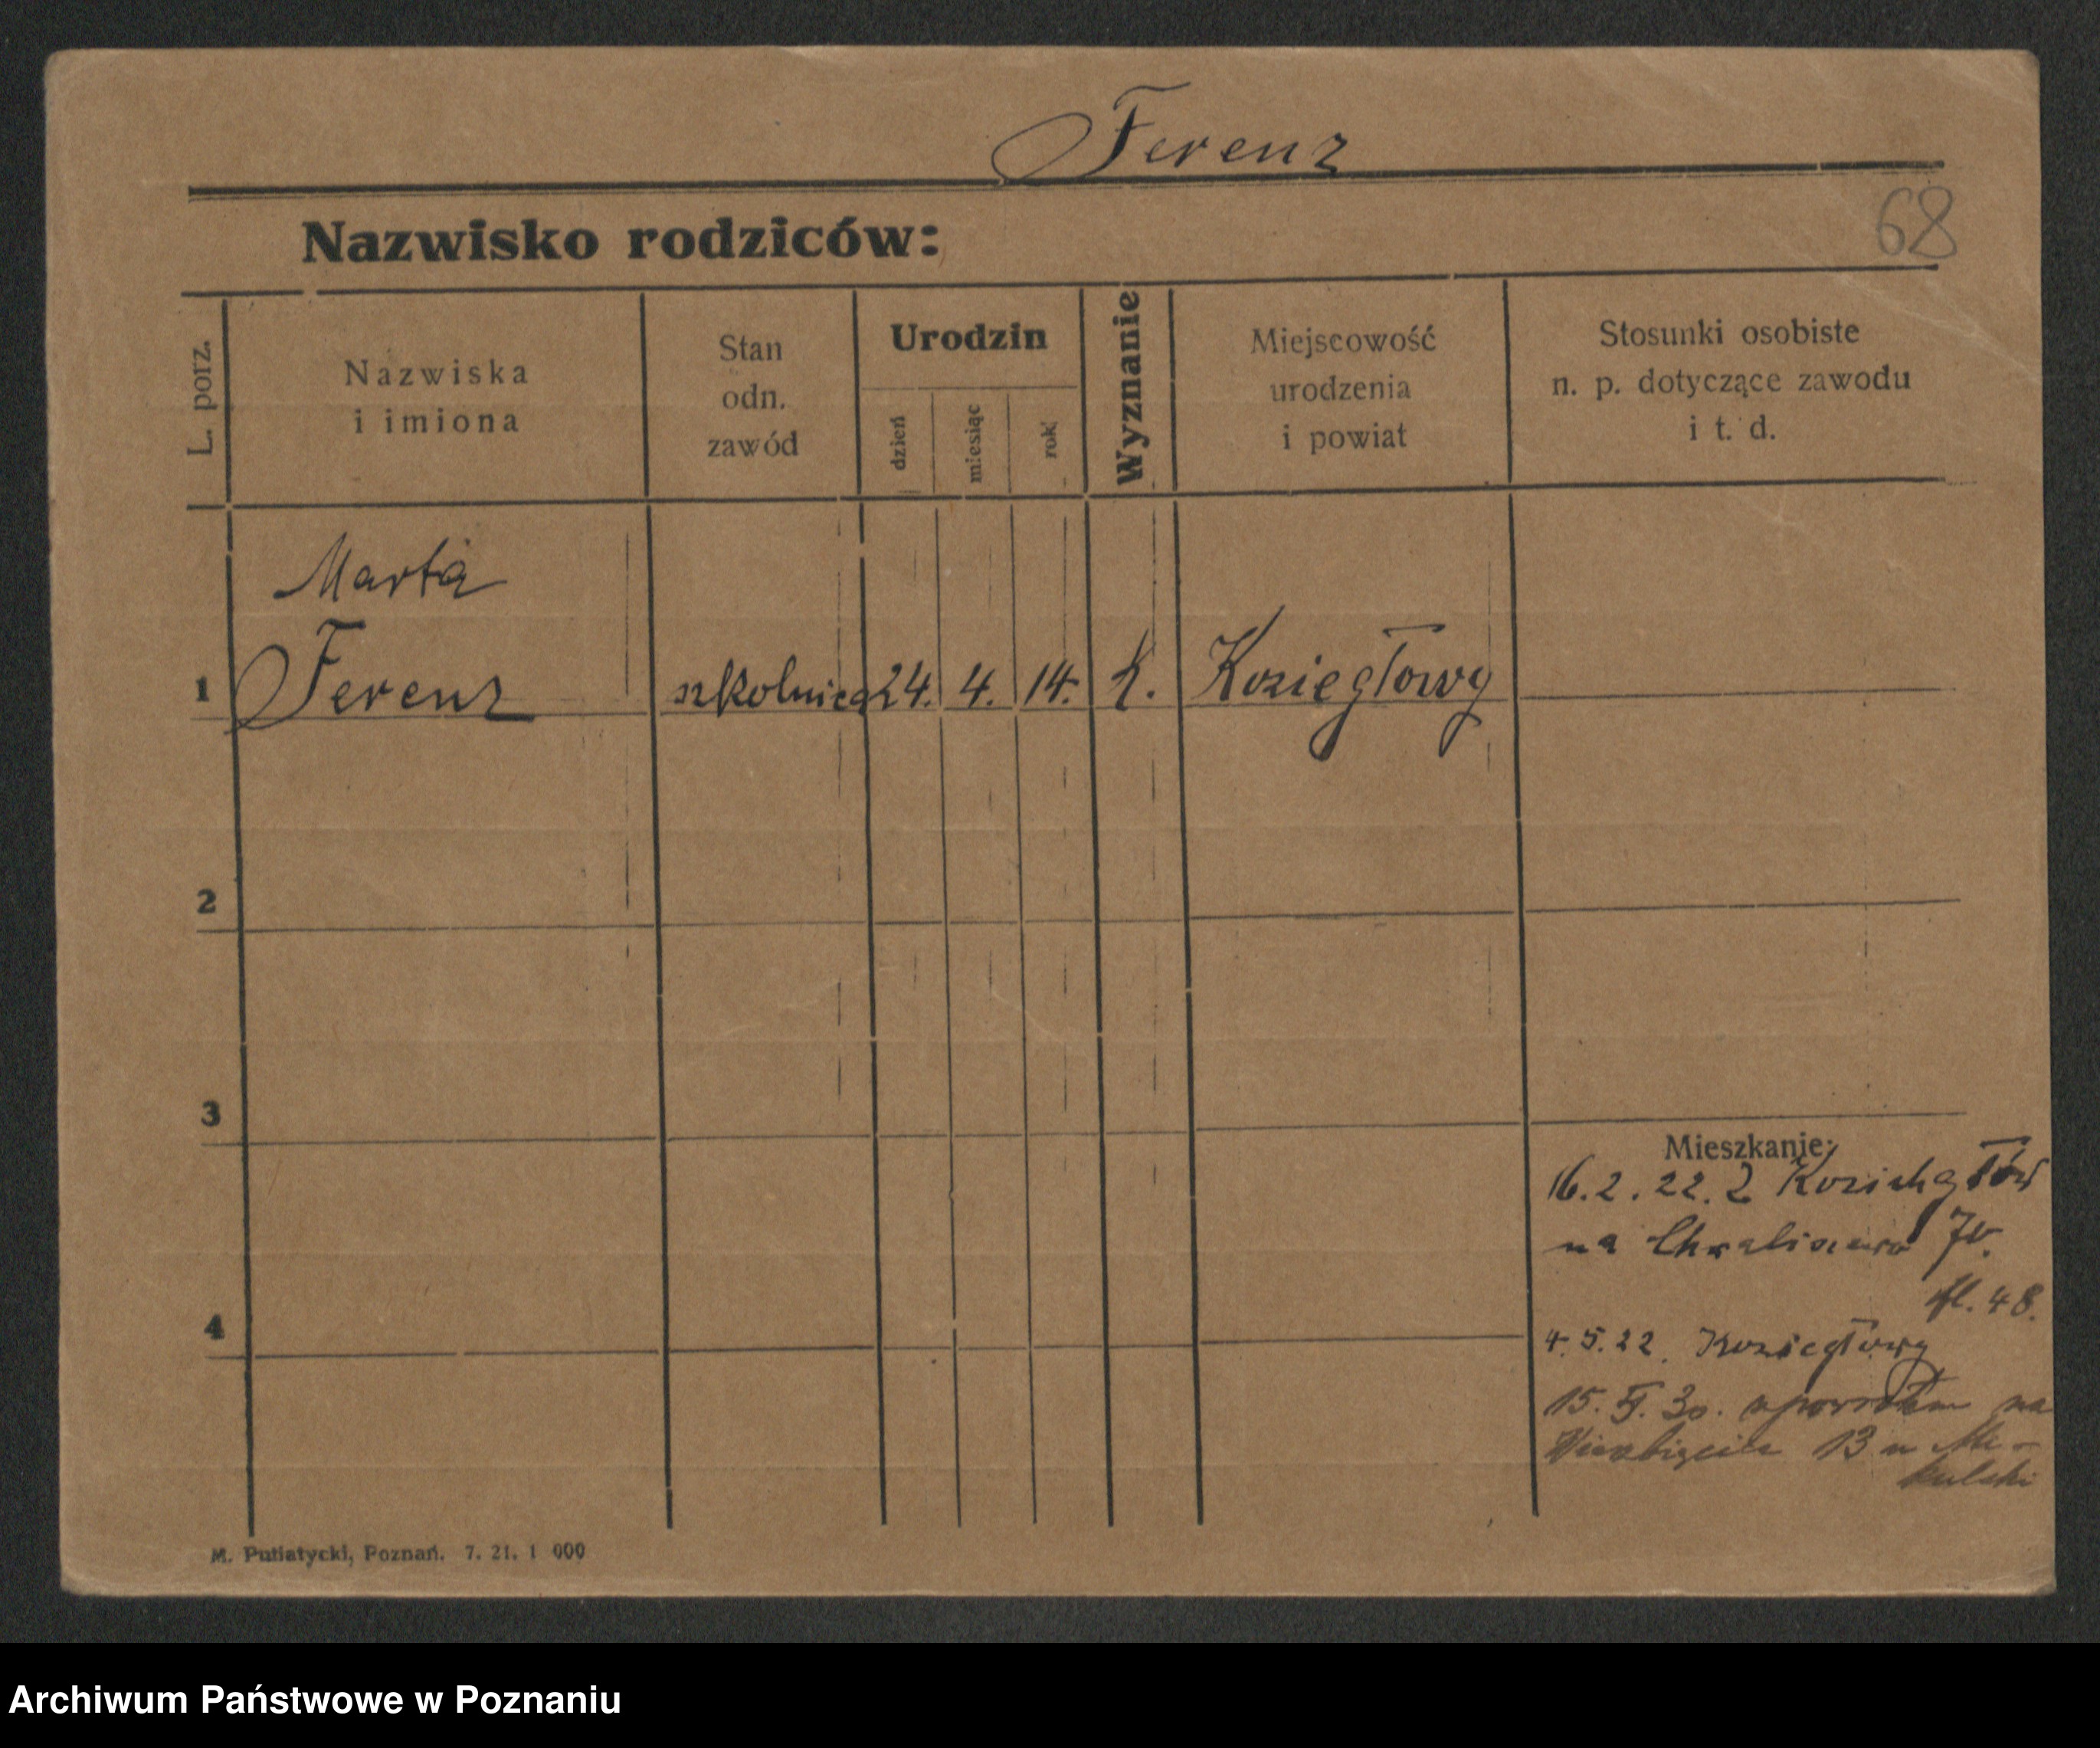 Ferenz
68
Nazwisko rodziców:
L. porz.
Nazwiska
i imiona
Stan
odn.
zawód
Urodzin
dzień
miesiąc
rok
Wyznanie
Miejscowość
urodzenia
i powiat
Stosunki osobiste
n. p. dotyczące zawodu
i t. d.
Marta
1 Ferenz szkolnica 24. 4. 14. k. Koziegłowy
2
3
4
Mieszkanie:
16. 2. 22. z
na Chwaliszewo 70.
fl. 48.
4. 5. 22. Koziegłowy
15. 30. na
13 u Mi-
kulski
M. Putiatycki, Poznań. 7. 21. 1 000
Archiwum Państwowe w Poznaniu